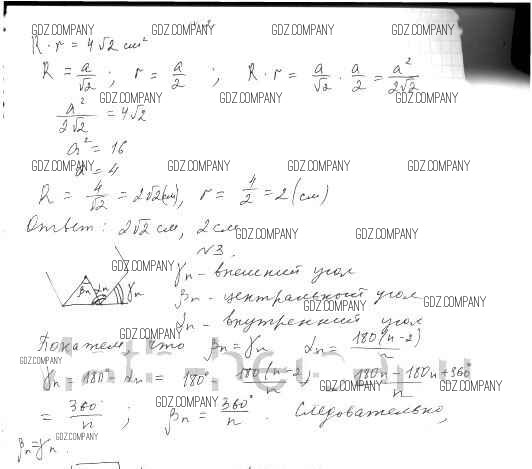 GDZ.COMPANY GDZ.COMPANY GDZ.COMPANY GDZ.COMPANY
R · r = 4√2 см²
R = a/√2 ; r = a/2 ; R · r = a/√2 · a/2 = a²/2√2
GDZ.COMPANY GDZ.COMPANY GDZ.COMPANY
a²/2√2 = 4√2
a² = 16
GDZ.COMPANY GDZ.COMPANY GDZ.COMPANY GDZ.COMPANY
a = 4
R = 4/√2 = 2√2(см), r = 4/2 = 2 (см)
Ответ: 2√2 см, 2 см
GDZ.COMPANY GDZ.COMPANY
N3.
GDZ.COMPANY
βn αn γn
γn - внешний угол
βn - центральной угол
GDZ.COMPANY GDZ.COMPANY
αn - внутренний угол
GDZ.COMPANY
Покажем, что βn = γn αn = 180(n-2)/n
GDZ.COMPANY GDZ.COMPANY
γn = 180° - αn = 180° - 180(n-2)/n = 180n - 180n + 360/n
GDZ.COMPANY GDZ.COMPANY GDZ.COMPANY
= 360°/n ; βn = 360°/n . Следовательно,
GDZ.COMPANY GDZ.COMPANY
βn = γn.
GDZ.COMPANY